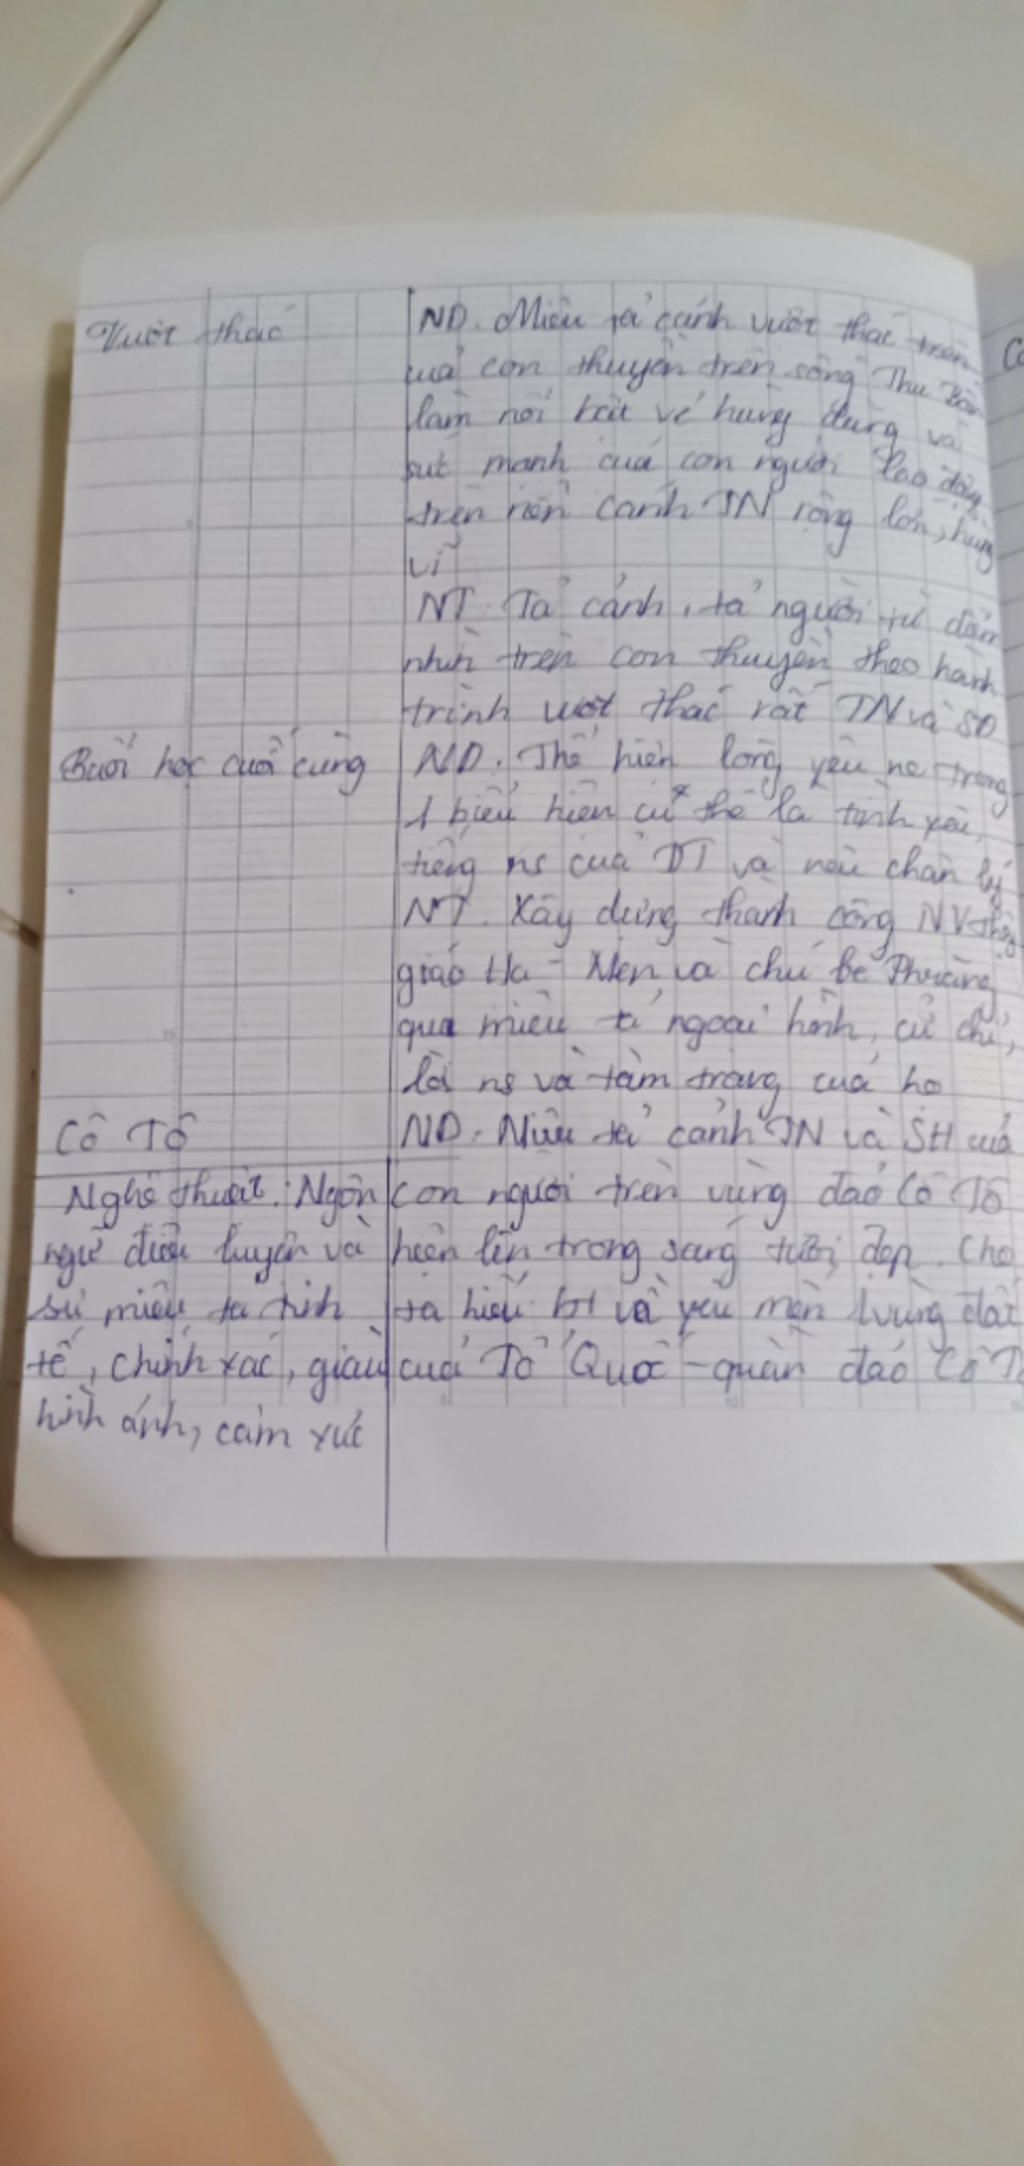 Vượt thác
ND. Miêu tả cảnh vượt thác trên
của con thuyền trên sông Thu Bồn
làm nổi bật vẻ hùng dũng và
sức mạnh của con người lao động
trên nền cảnh TN rộng lớn, hùng
vĩ
NT. Tả cảnh, tả người từ điểm
nhìn trên con thuyền theo hành
trình vượt thác rất TN và SĐ
Buổi học cuối cùng
ND. Thể hiện lòng yêu nc trong
1 biểu hiện cụ thể là tình yêu
tiếng ns của DT và nêu chân lý
NT. Xây dựng thành công NV thầy
giáo Ha-Men và chú bé Phrăng
qua miêu tả ngoại hình, cử chỉ,
lời ns và tâm trạng của họ
Cô Tô
ND. Miêu tả cảnh TN và SH của
con người trên vùng đảo Cô Tô
hiện lên trong sáng tươi đẹp. Cho
ta hiểu bt và yêu mến 1 vùng đất
của Tổ Quốc - quần đảo Cô
Nghệ thuật: Ngôn
ngữ điêu luyện và
sự miêu tả tinh
tế, chính xác, giàu
hình ảnh, cảm xúc